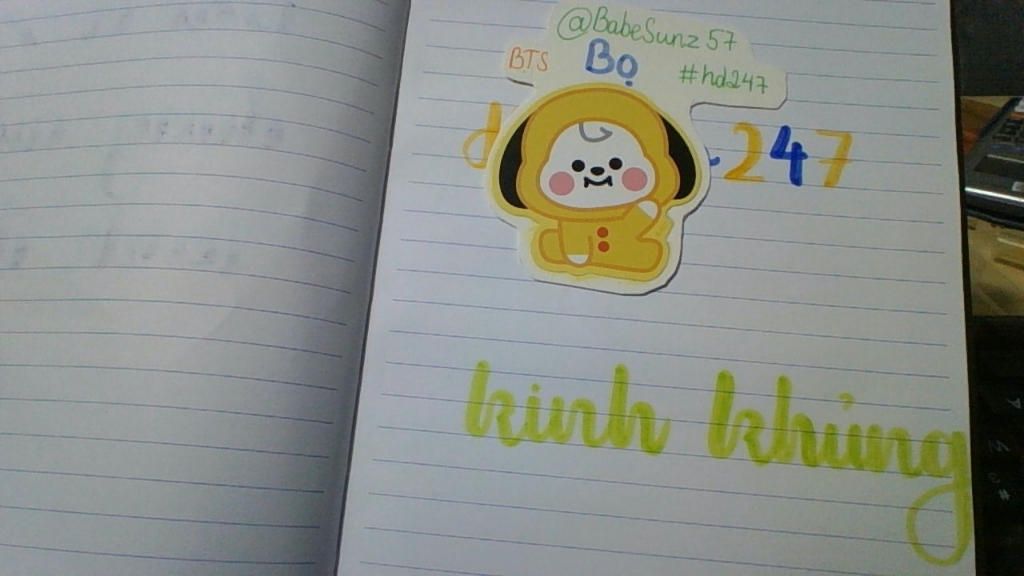 @BabeSunz57
BTS Bọ #hd247
247
kinh khủng